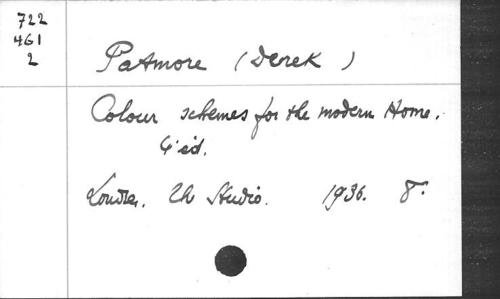 722
461
2
Patmore (Derek)
Colour schemes for the modern Home.
éd.
Londres. Th Studio. 1936. 8°.